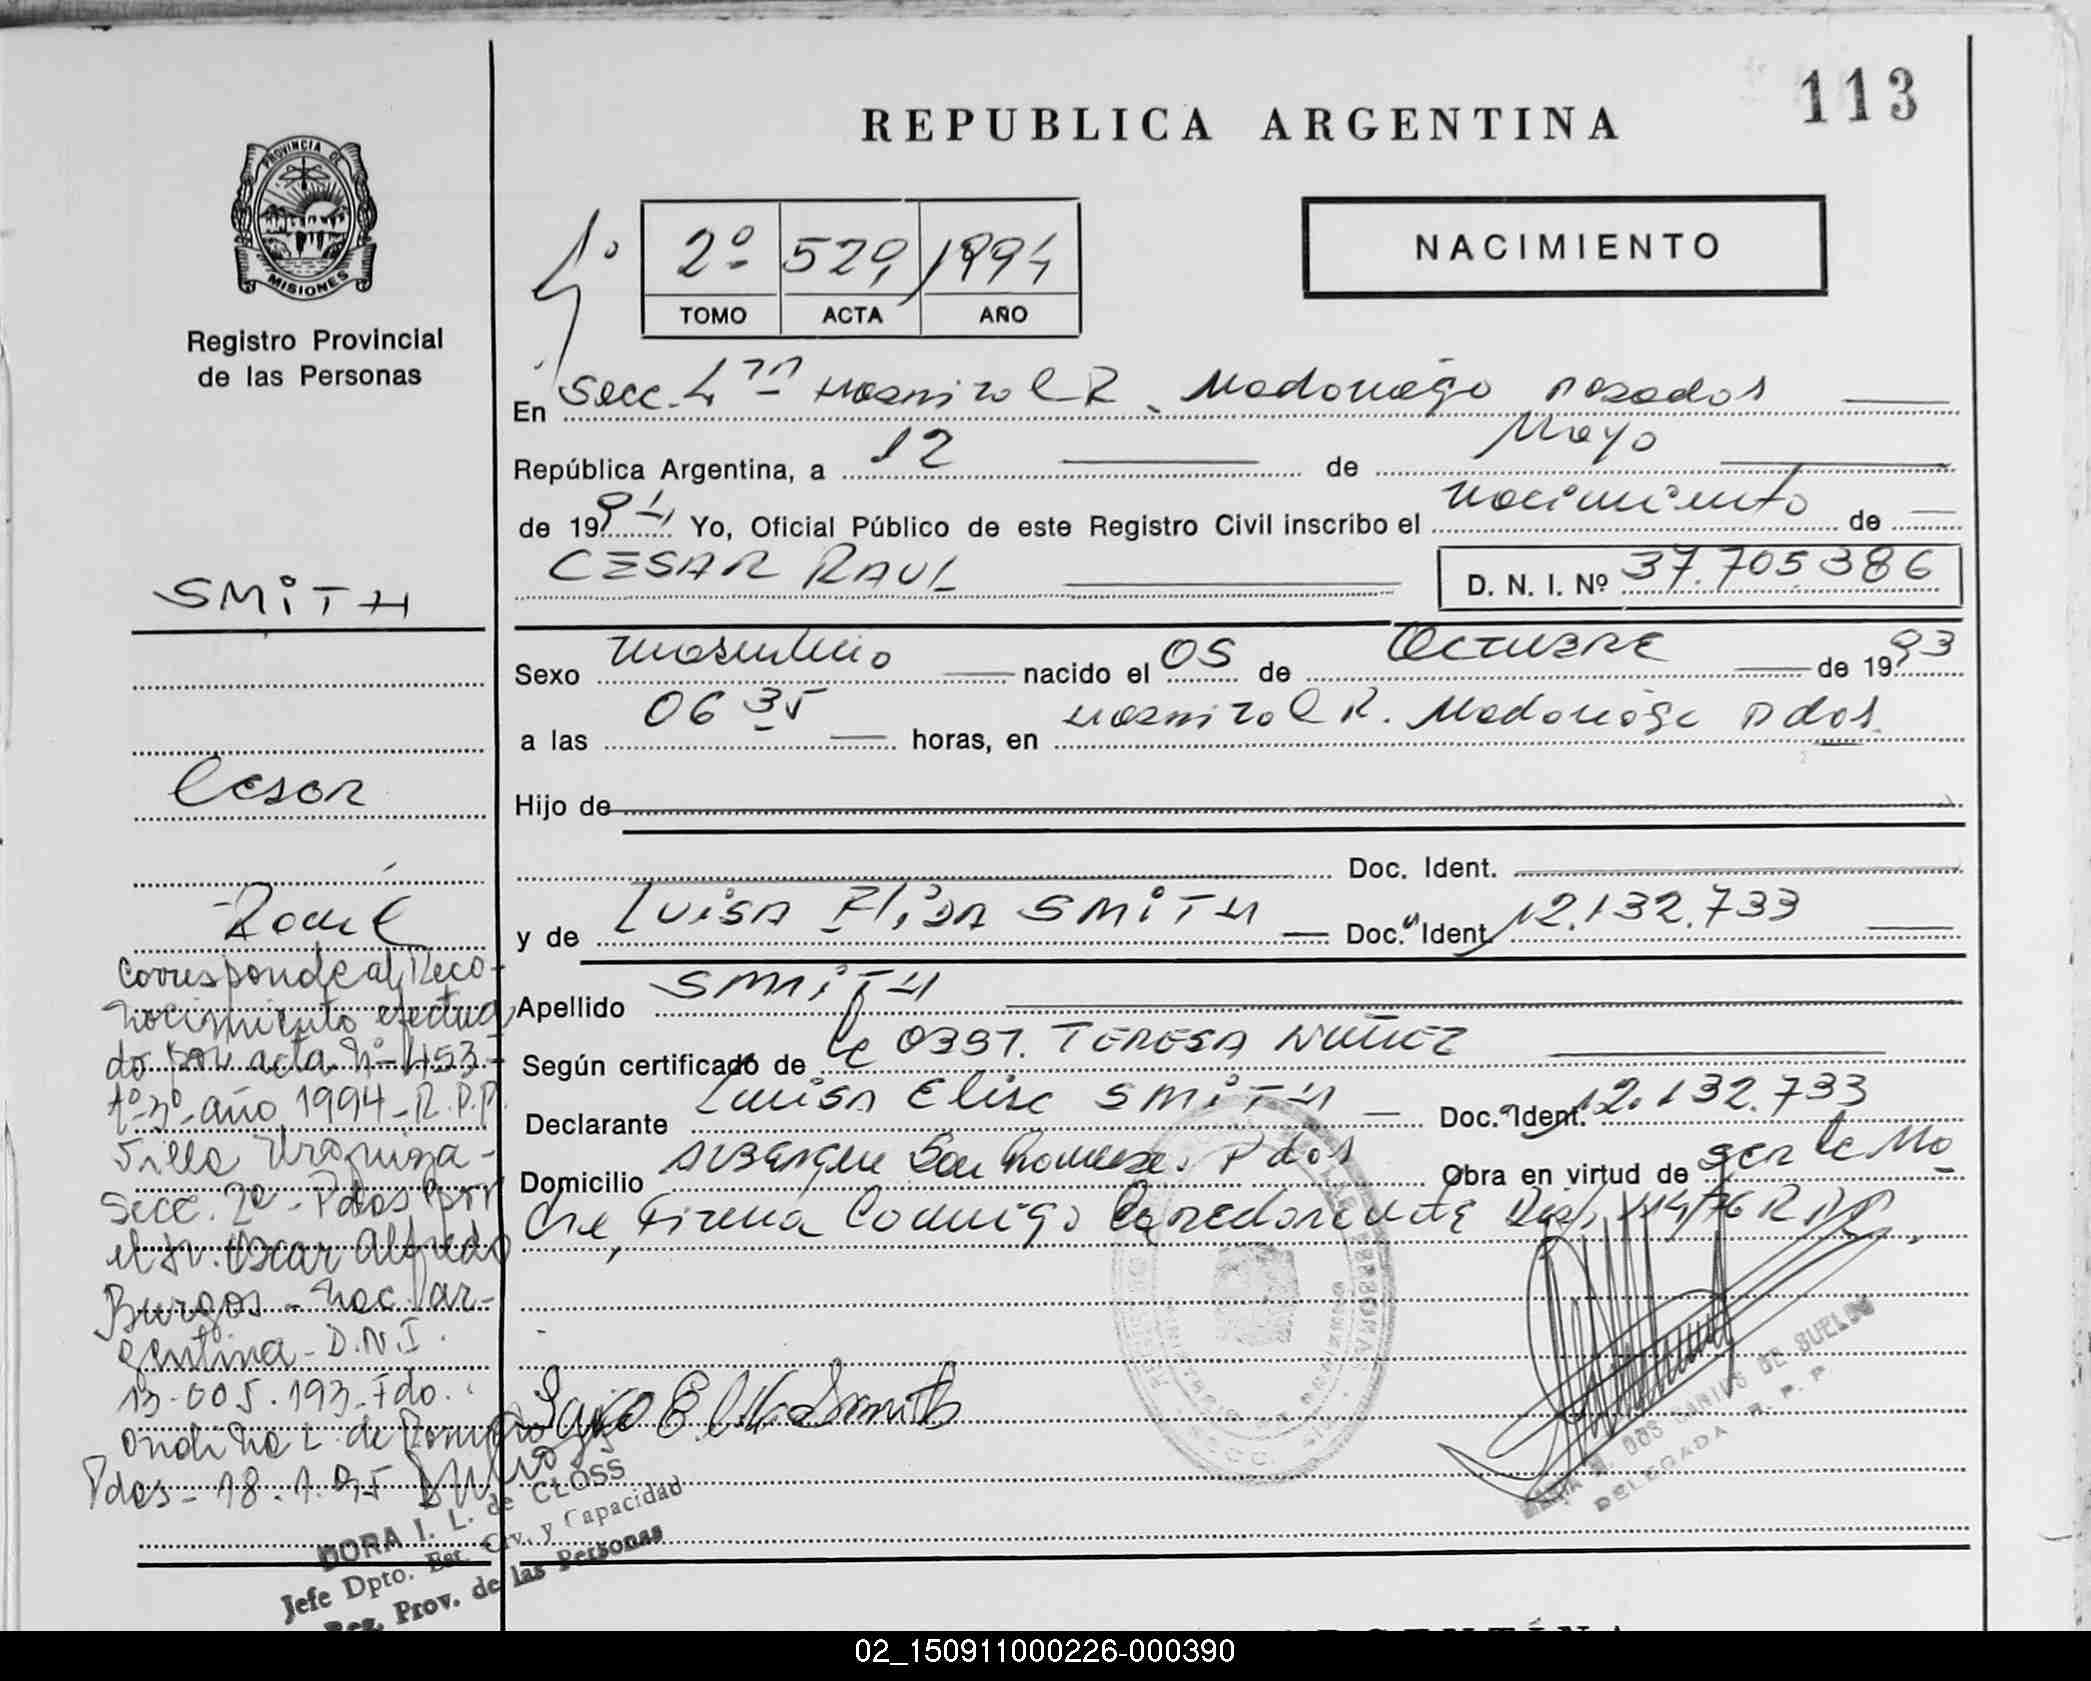 113
REPUBLICA ARGENTINA
PROVINCIA DE
MISIONES
Registro Provincial
de las Personas
1º
2º 529 1994
TOMO ACTA AÑO
NACIMIENTO
En Secc. 4ta Hospital R. Madariaga Posadas
República Argentina, a 12 de Mayo
de 1994 Yo, Oficial Público de este Registro Civil inscribo el nacimiento de
CESAR RAUL D. N. I. Nº 37.705.386
Sexo masculino nacido el 05 de OCTUBRE de 1993
a las 06 35 horas, en Hospital R. Madariaga Pdas.
Hijo de
Doc. Ident.
y de Luisa Elisa SMITH Doc. Ident. 12.132.733
Apellido SMITH
Según certificado de TERESA NUÑEZ
Declarante Luisa Elisa SMITH Doc. Ident. 12.132.733
Domicilio Albergue Pdas Obra en virtud de ser la Ma
dre, Firma Conmigo R.P.P.
SMITH
Cesar
Raul
Corresponde al Reco-
nocimiento efectua
do por acta Nº 453-
tº 3º año 1994-R.P.P.
Villa Urquiza-
Secc. 2a - Pdas por
el Sr. Oscar Alfredo
Burgos - nac. ar-
gentina - D.N.I.
13.005.193. Fdo.
Ondina L. de Romero
Pdas - 18.1.95
DORA I. L. de CLOSS
Jefe Dpto. Est. Civ. y Capacidad
Reg. Prov. de las Personas
DOS SANTOS DE SUELDO
DELEGADA R. P. P.
02_150911000226-000390